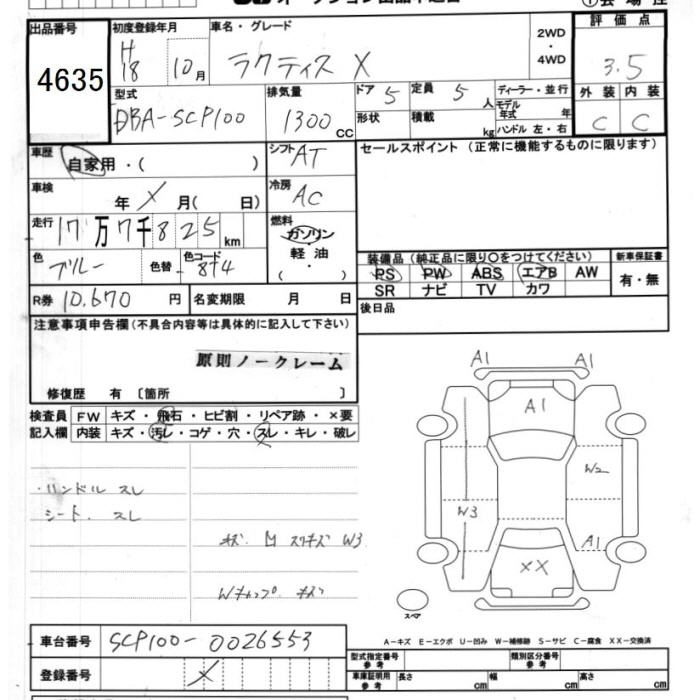 出品番号 4635
初度登録年月 H18 10月
車名・グレード ラクティス X
2WD・4WD
評価点 3.5
外装 内装
C C
型式 DBA-SCP100
排気量 1300 CC
ドア 5 定員 5 人
形状 積載 kg
ディーラー・並行
モデル年式 年
ハンドル 左・右
車歴 自家用・( )
シフト AT
車検 年 X 月( 日)
冷房 AC
走行 17万7千825 km
燃料 ガソリン 軽油 ( ・ )
色 ブルー 色替 色コード 8T4
R券 10,670 円 名変期限 月 日
セールスポイント (正常に機能するものに限ります)
装備品 (純正品に限り○をつけてください) 新車保証書
PS PW ABS エアB AW 有・無
SR ナビ TV カワ
後日品
注意事項申告欄(不具合内容等は具体的に記入して下さい)
原則ノークレーム
修復歴 有 〔箇所 〕
検査員 FW キズ・飛石・ヒビ割・リペア跡・×要
記入欄 内装 キズ・汚レ・コゲ・穴・スレ・キレ・破レ
・ハンドル スレ
シート. スレ
W3
A1 A1
A1
W2
W3
A1
XX
スペア
車台番号 SCP100-0026553
登録番号 X
A－キズ E－エクボ U－凹み W－補修跡 S－サビ C－腐食 XX－交換済
型式指定番号 参考 類別区分番号 参考
車庫証明用 参考 長さ cm 幅 cm 高さ cm